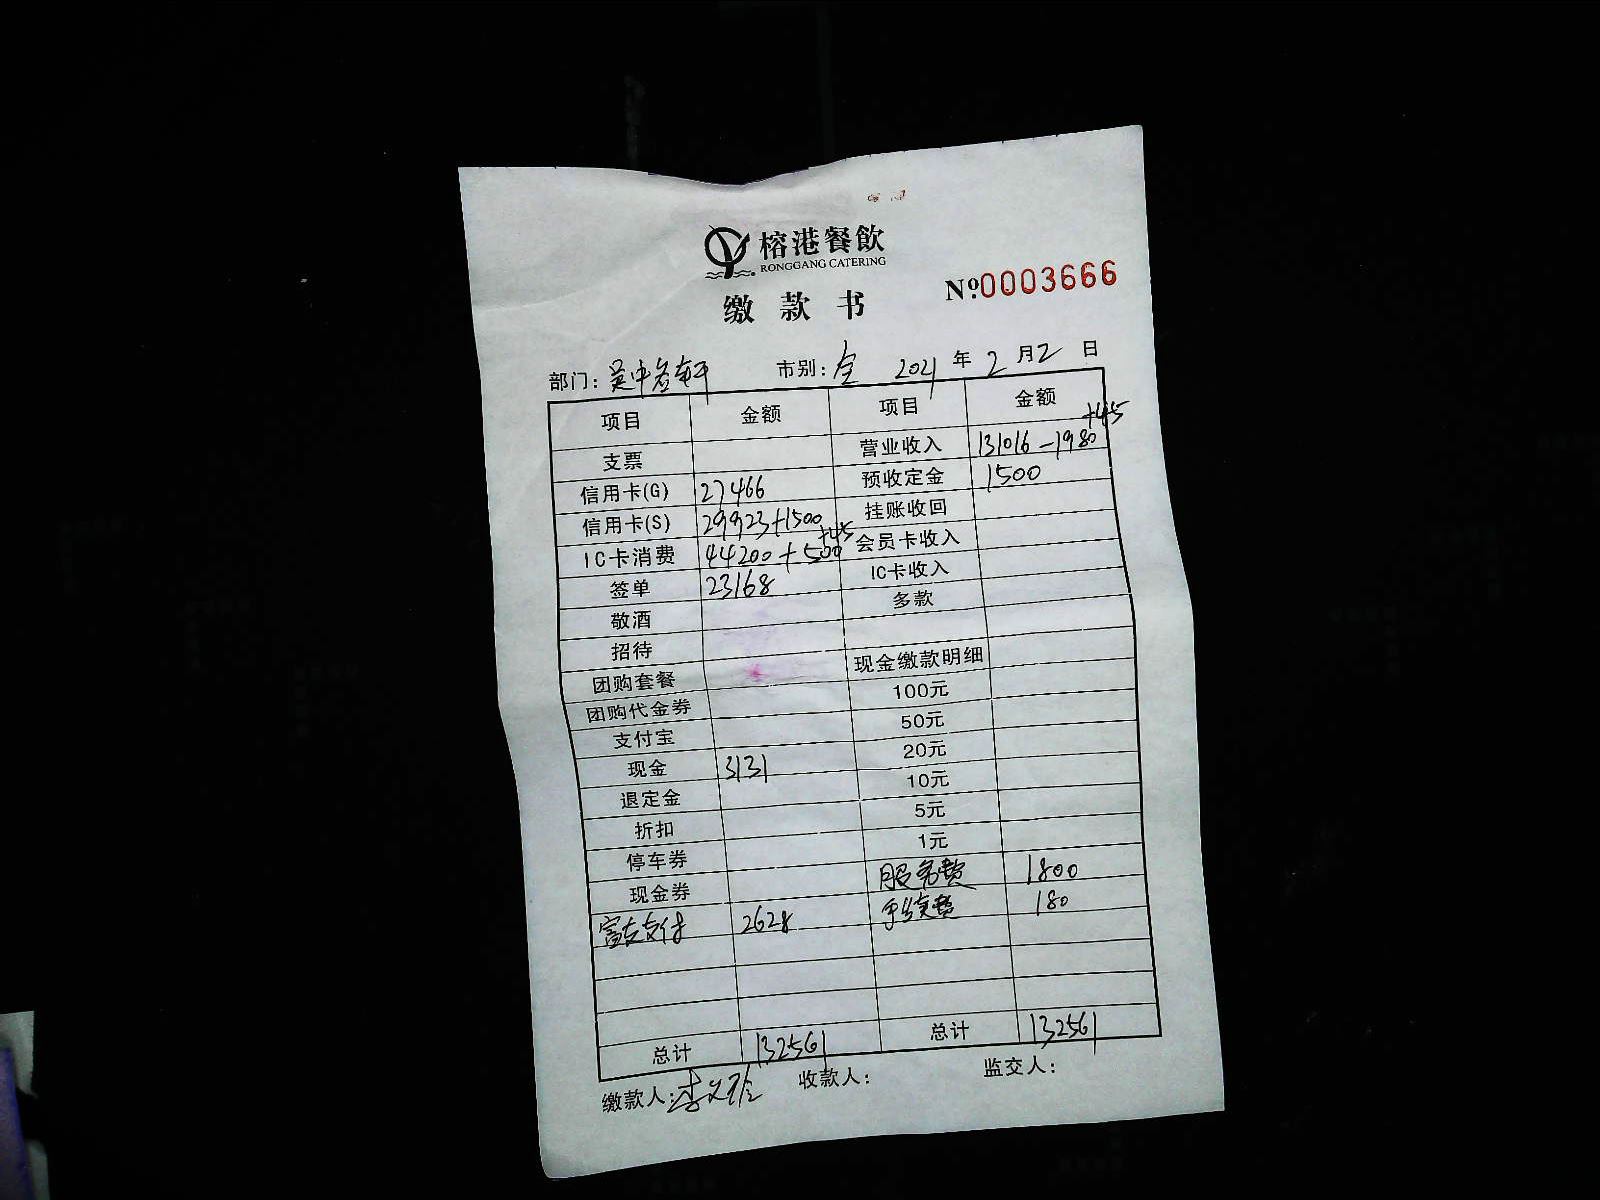 榕港餐飲
RONGGANG CATERING
缴款书 №0003666
部门: 吴中名轩 市别: 全 2021 年 2 月 2 日
项目 金额 项目 金额
支票 营业收入 131016-1980 +45
信用卡(G) 27466 预收定金 1500
信用卡(S) 29923+1500 挂账收回
IC卡消费 44200+500 +45 会员卡收入
签单 23168 IC卡收入
敬酒 多款
招待
团购套餐 现金缴款明细
团购代金券 100元
支付宝 50元
现金 3131 20元
退定金 10元
折扣 5元
停车券 1元
现金券 服务费 1800
富友支付 2628 手续费 180
总计 132561 总计 132561
缴款人: 李 收款人: 监交人: